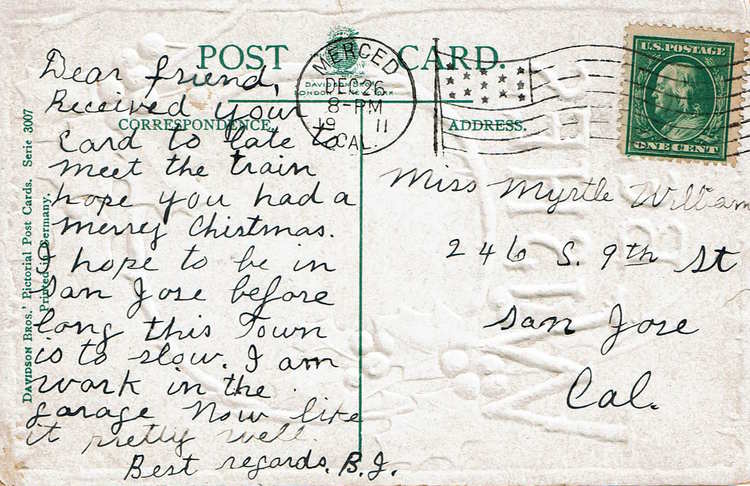 POST CARD.
DAVIDSON BROS.
LONDON & NEW YORK
CORRESPONDENCE.
ADDRESS.
MERCED
DEC 26
8-PM
19 11
CAL.
U.S. POSTAGE
ONE CENT
DAVIDSON BROS.' Pictorial Post Cards. Serie 3007
Printed in Germany.
Dear friend,
Received your
card to late to
meet the train
hope you had a
merry Chistmas.
I hope to be in
San Jose before
long this Town
is to slow. I am
work in the
garage Now like
it pretty well.
Best regards. B.J.
Miss Myrtle William
246 S. 9th St
San Jose
Cal.